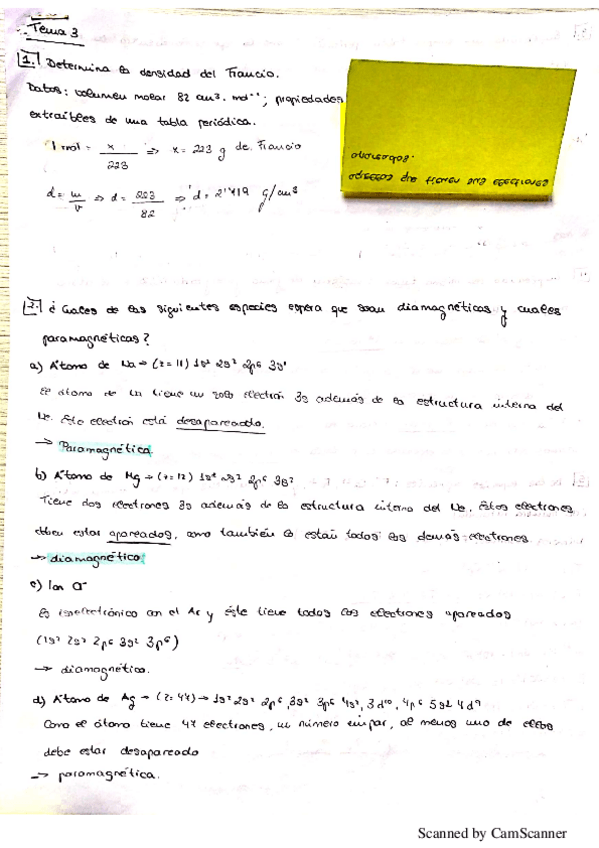 Tema 3
1. Determina la densidad del Francio.
Datos: volumen molar 82 cm³. mol⁻¹; propiedades
extraibles de una tabla periódica.
1 mol = x/223 => x = 223 g de Francio
d = m/v => d = 223/82 => d = 2'719 g/cm³
electrones
2. ¿Cuales de las siguientes especies espera que sean diamagnéticas y cuales
paramagnéticas?
a) Átomo de Na → (z = 11) 1s² 2s² 2p⁶ 3s¹
El átomo de Na tiene un solo electrón 3s además de la estructura interna del
Ne. Este electrón está desapareado.
→ Paramagnética.
b) Átomo de Mg → (z = 12) 1s² 2s² 2p⁶ 3s²
Tiene dos electrones 3s además de la estructura interna del Ne. Estos electrones
deben estar apareados, como también lo están todos los demás electrones.
→ diamagnético.
c) Ion Cl⁻
Es isoelectrónico con el Ar y éste tiene todos los electrones apareados
(1s² 2s² 2p⁶ 3s² 3p⁶)
→ diamagnético.
d) Átomo de Ag → (z = 47) → 1s² 2s² 2p⁶, 3s² 3p⁶ 4s², 3d¹⁰, 4p⁶ 5s² 4d⁹
Como el átomo tiene 47 electrones, un número impar, al menos uno de ellos
debe estar desapareado
→ paramagnética.
Scanned by CamScanner